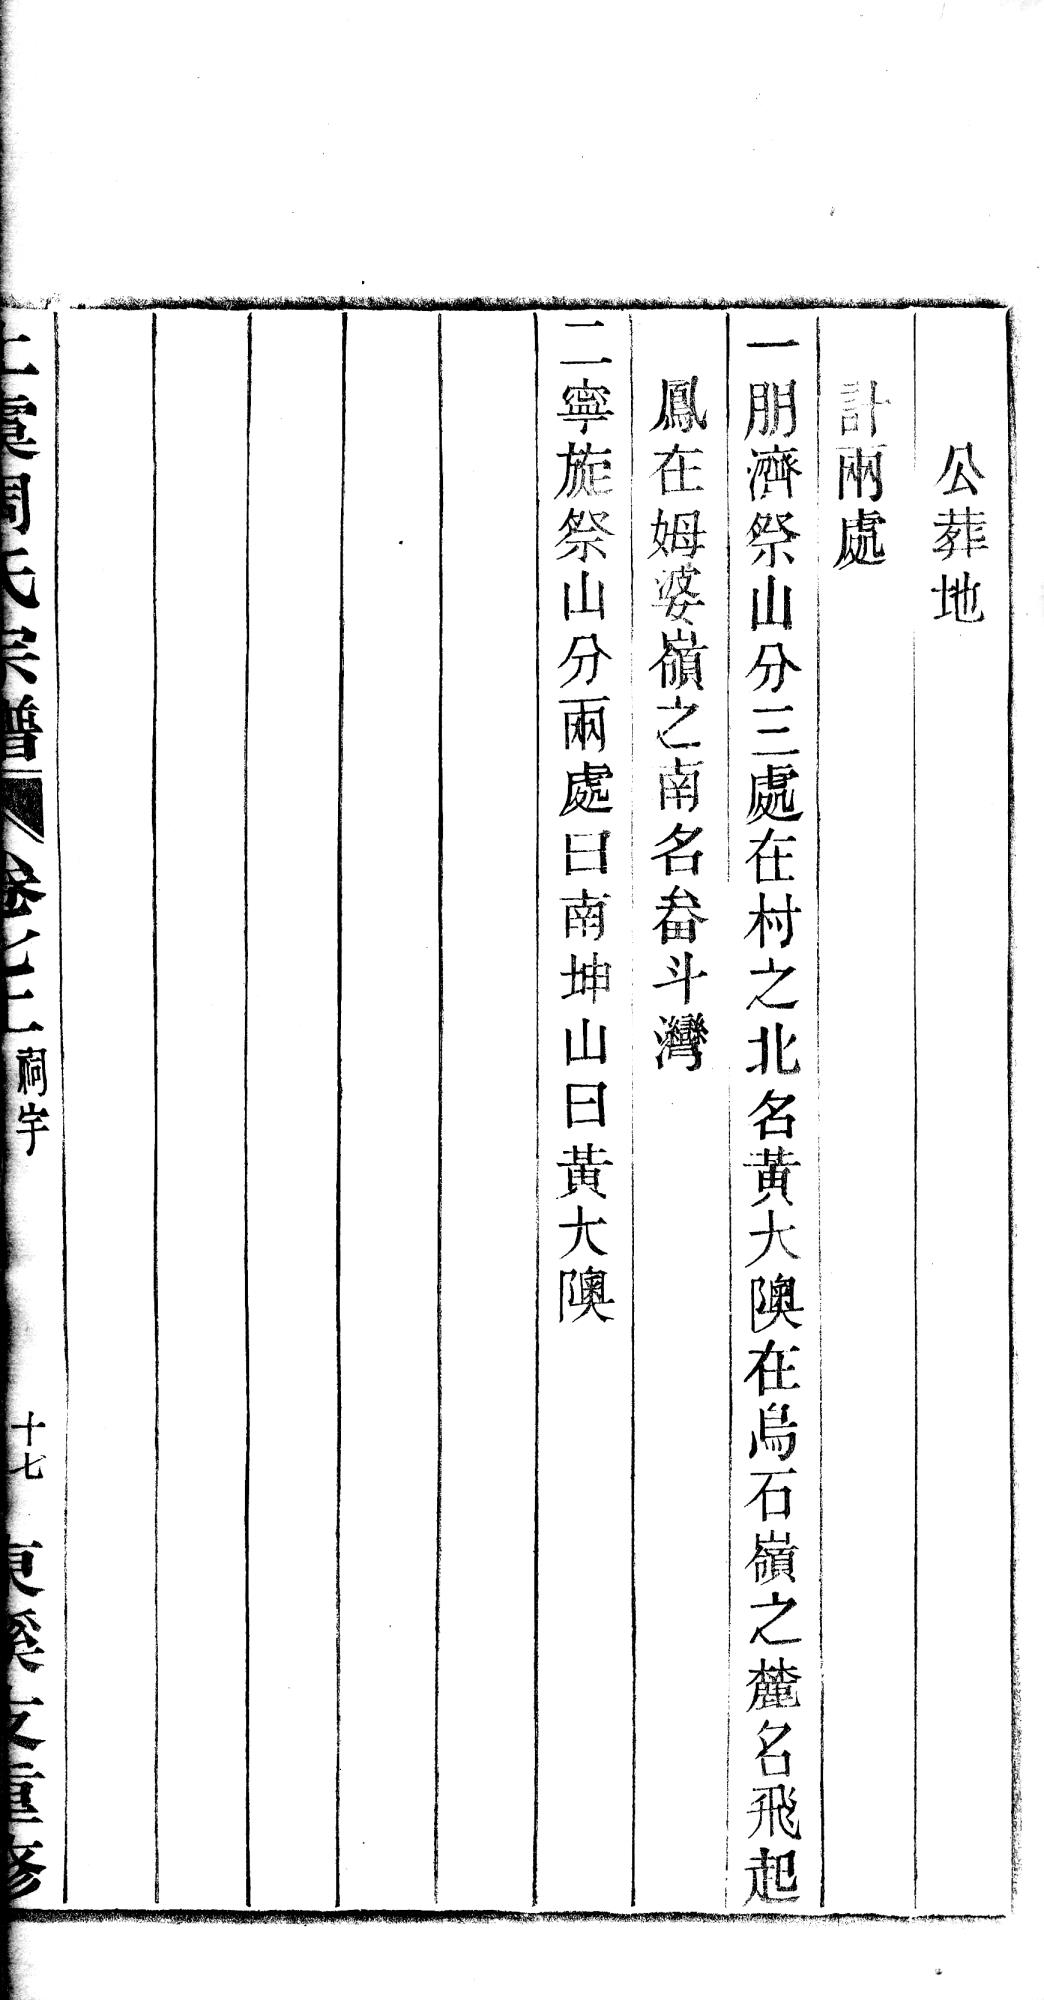 公葬地
計兩處
一朋濟祭山分三處在村之北名黃大隩在烏石嶺之麓名飛起
鳳在姆婆嶺之南名畚斗灣
二寧旋祭山分兩處曰南坤山曰黃大隩
上虞周氏宗譜
祠宇
十七
東溪支重修